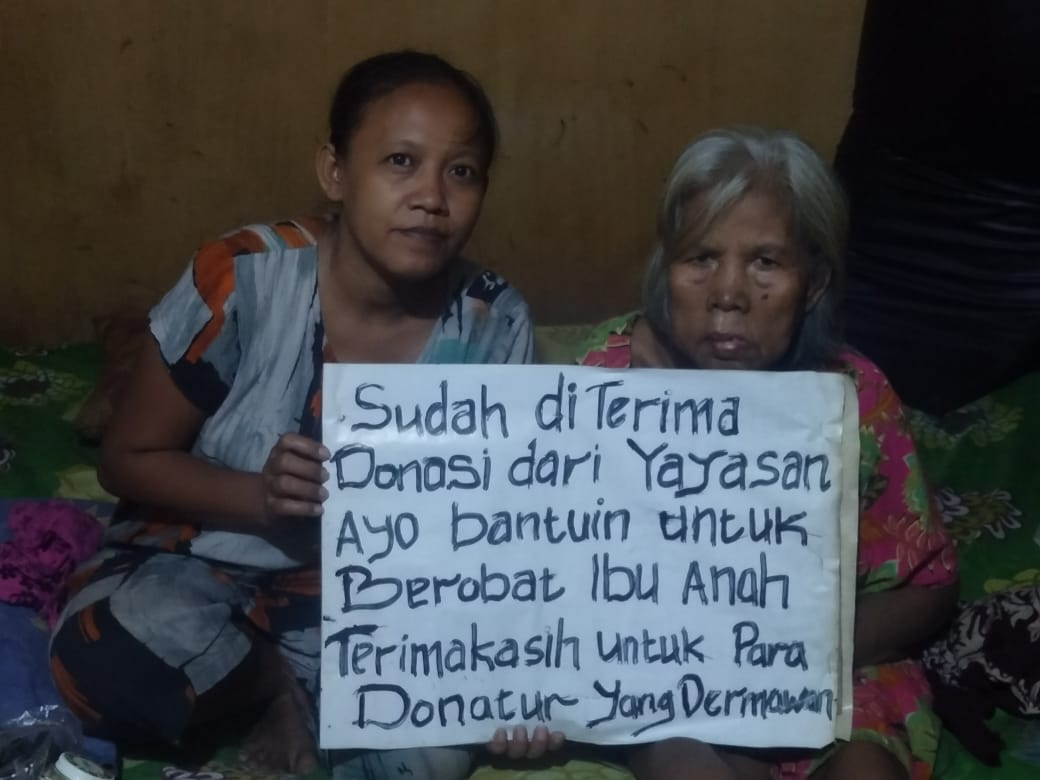 Sudah diTerima
Donasi dari Yayasan
Ayo bantuin untuk
Berobat Ibu Anah
Terimakasih untuk Para
Donatur Yang Dermawan